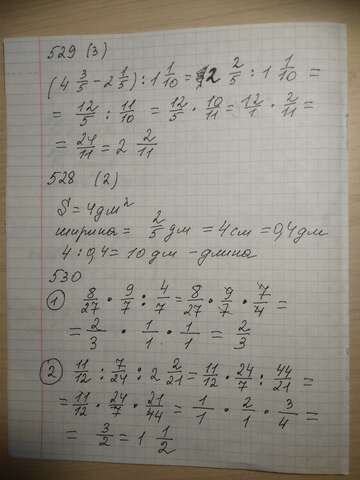 529 (3)
(4 3/5 - 2 1/5) : 1 1/10 = 2 2/5 : 1 1/10 =
= 12/5 : 11/10 = 12/5 · 10/11 = 12/1 · 2/11 =
= 24/11 = 2 2/11
528 (2)
S = 4 дм²
ширина = 2/5 дм = 4 см = 0,4 дм
4 : 0,4 = 10 дм - длина
530
1 8/27 · 9/7 : 4/7 = 8/27 · 9/7 · 7/4 =
= 2/3 · 1/1 · 1/1 = 2/3
2 11/12 : 7/24 : 2 2/21 = 11/12 · 24/7 : 44/21 =
= 11/12 · 24/7 · 21/44 = 1/1 · 2/1 · 3/4 =
= 3/2 = 1 1/2